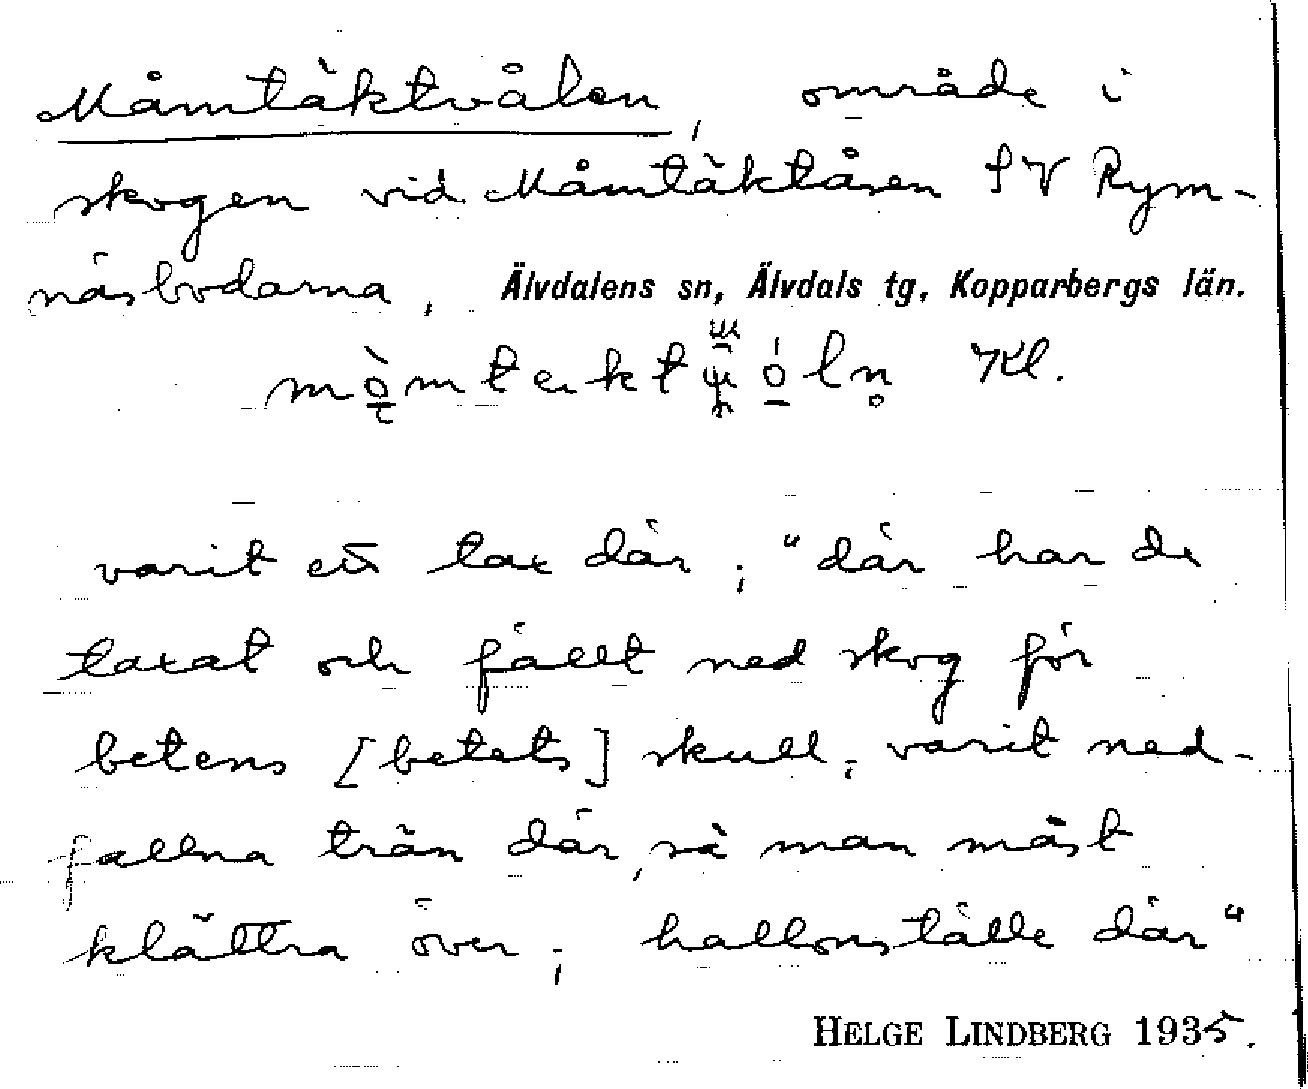 Måmtäktvålen, område i
skogen vid Måmtäktåsen SV Rym-
näsbodarna, Älvdalens sn, Älvdals tg, Kopparbergs län.
Kl.
varit ett tax där; "där har de
taxat och fällt ned skog för
betens [betets] skull, varit ned-
fallna trän där, så man måst
klättra över; hallonställe där"
HELGE LINDBERG 1935.